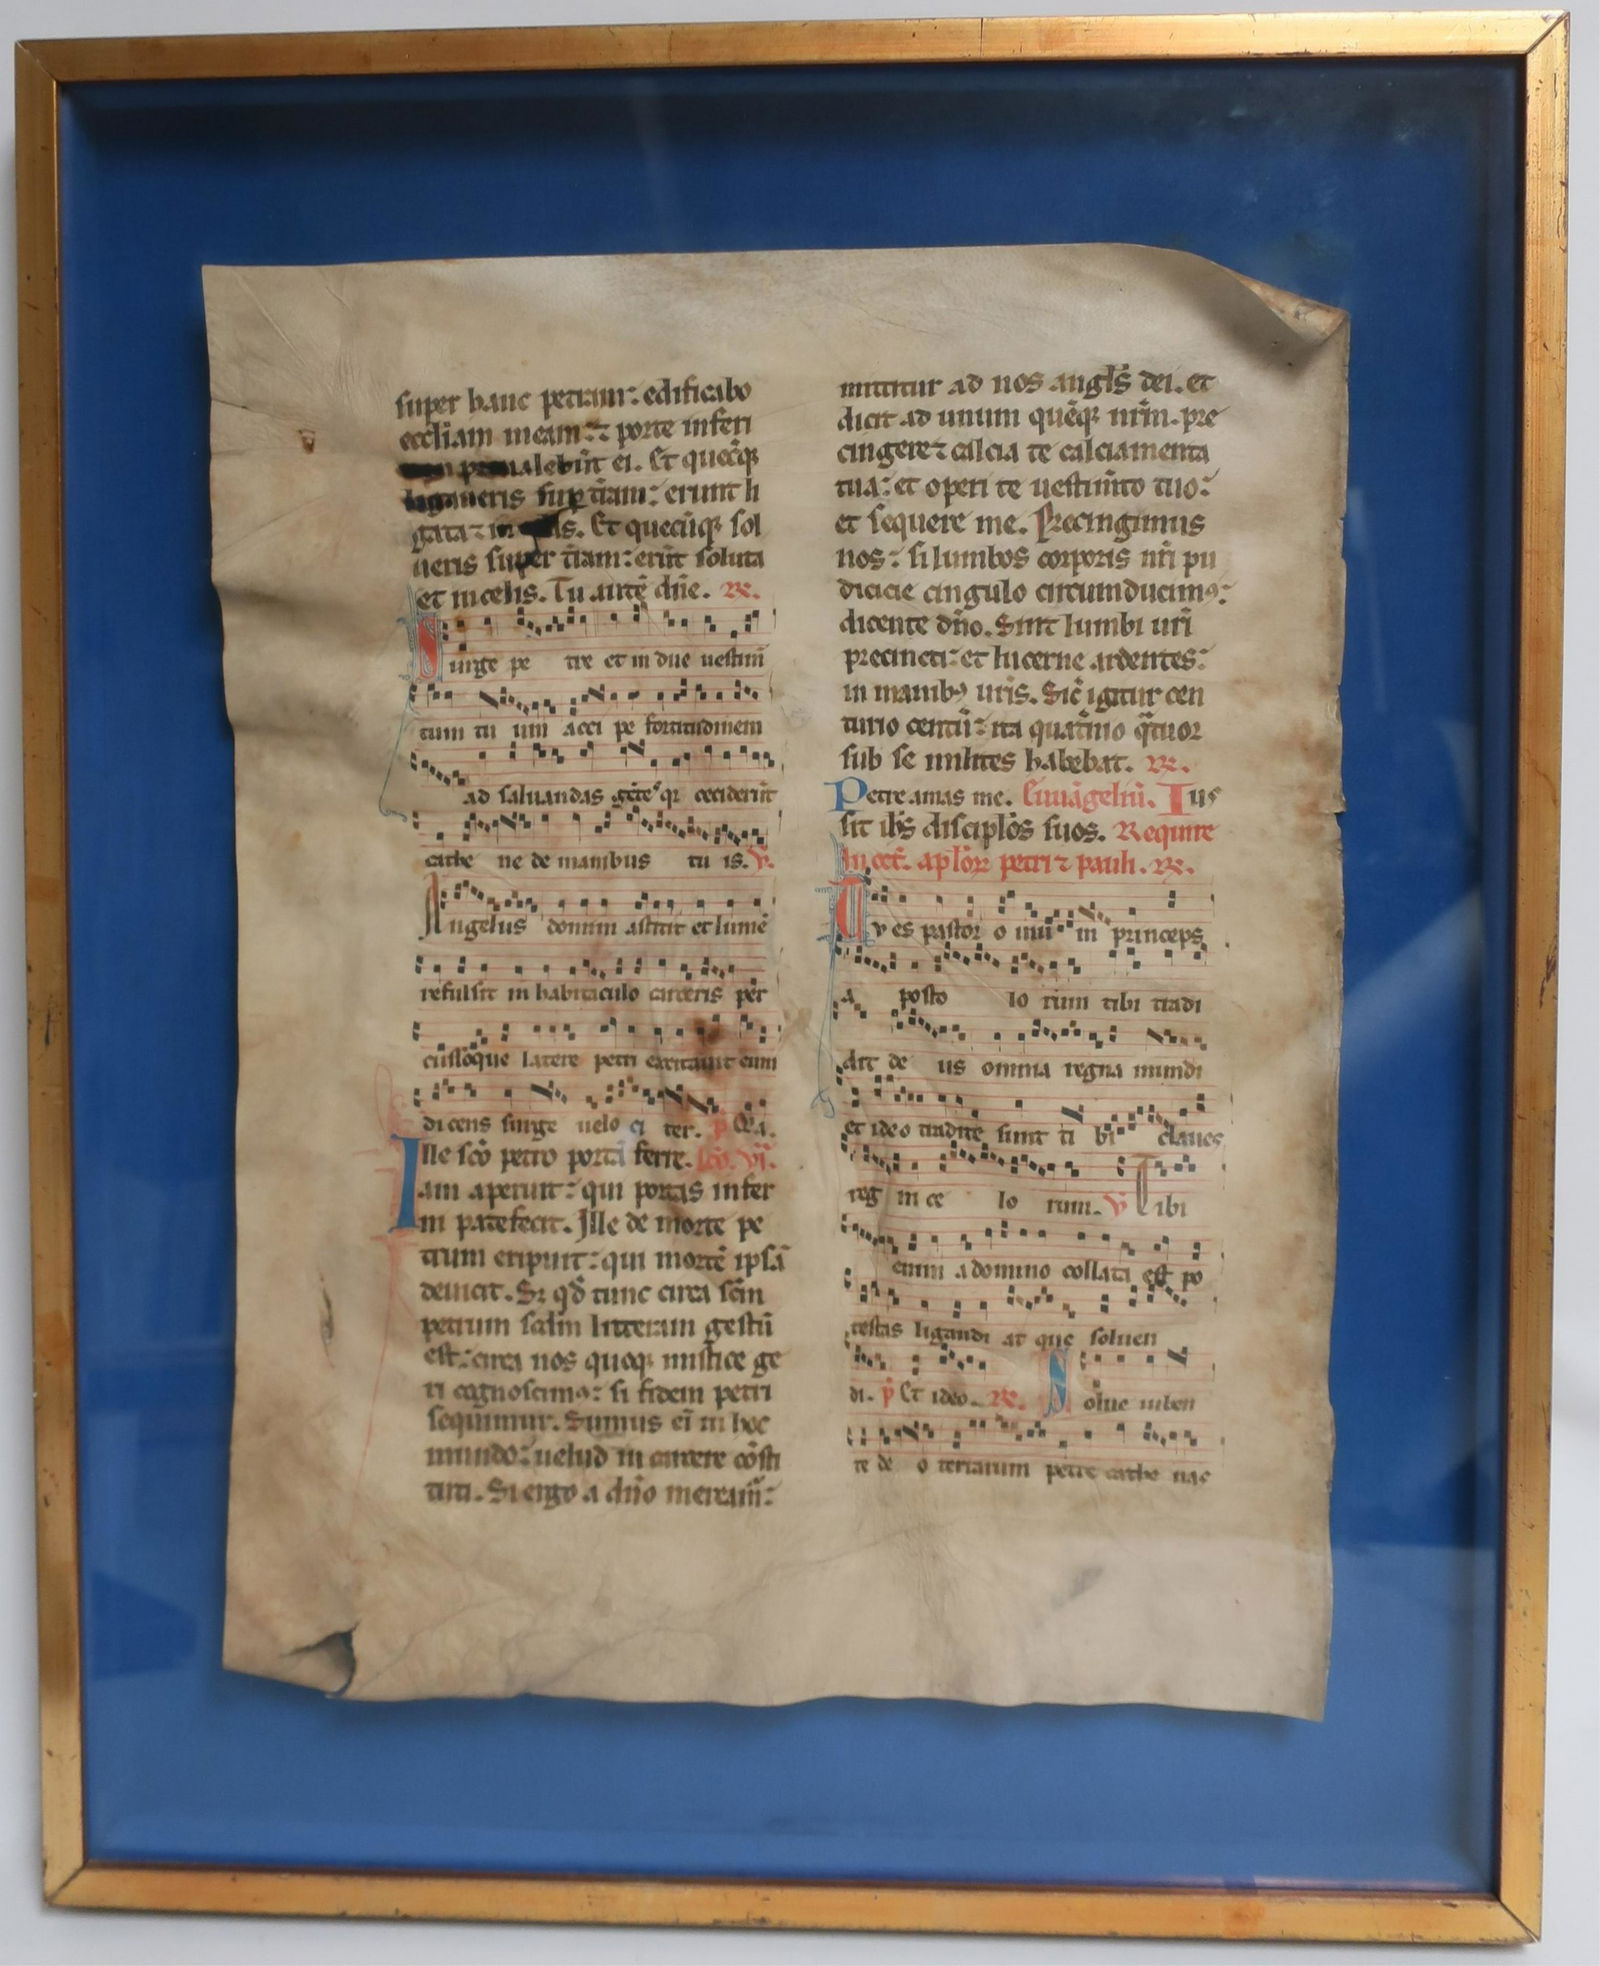 super hanc petram: edificabo
eccliam meam: ⁊ porte inferi
preualebūt ei. Et quecūq;
ligaueris sup t̄ram: erunt li
gata ⁊ in celis. Et quecūq; sol
ueris super t̄ram: erūt soluta
et in celis. Tu autē dn̄e. R.
Surge petre et indue uestim
tum tu um acci pe fortitudinem
ad saluandas gētes qr ceciderūt
cathe ne de manibus tu is. V.
Angelus domini astitit et lumē
refulsit in habitaculo carceris per
cussoq̄ue latere petri excitauit eum
dicens surge uelo ci ter. p̄ Q̄a.
Ille sc̄o petro portā ferre. Lc̄o. vi.
am aperuit: qui portas infer
ni patefecit. Ille de morte pe
trum eripuit: qui mortē ipsā
deuicit. S; qd̄ tunc circa sc̄m
petrum salm litteram gestū
est: circa nos quoq; mistice ge
ri cognoscimꝰ: si fidem petri
sequimur. Sumus ei̅ in hoc
mundo: uelud in carcere cōsti
tuti. Si ergo a dn̄o meream̄:
mittitur ad nos angl̄s dei. et
dicit ad unum quēq; nr̄m. pre
cingere ⁊ calcia te calciamenta
tua: et operi te uestim̄to tuo:
et sequere me. Precingimus
nos: si lumbos corporis nr̄i pu
dicicie cingulo circumducimꝰ:
dicente dn̄o. Sint lumbi ur̄i
precincti: et lucerne ardentes:
in manibꝰ ur̄is. Sic̄ igitur cen
turio centū: ita quat̄nio q̄tuor
sub se milites habebat. R.
Petre amas me. Euuāgeliū. Ius
sit ih̄s discipl̄os suos. Require
in oct̄. apl̄oꝝ petri ⁊ pauli. R.
Tv es pastor o uiū in princeps
a posto lo rum tibi tradi
dit de us omnia regna mundi
et ideo tradite sunt ti bi claues
reg ni ce lo rum. V Tibi
enim a domino collata est po
testas ligandi at que soluen
di. p̄ Et ideo. R. Solue iuben
te de o terrarum petre cathe nas